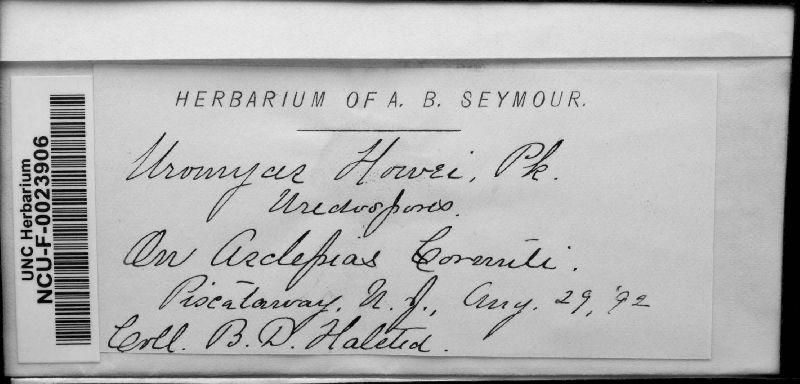 HERBARIUM OF A. B. SEYMOUR.
Uromyces Howei, Pk.
Uredospores.
On Asclepias Cornuti.
Piscataway, N. J., Aug. 29, '92
Coll. B. D. Halsted.
UNC Herbarium
NCU-F-0023906